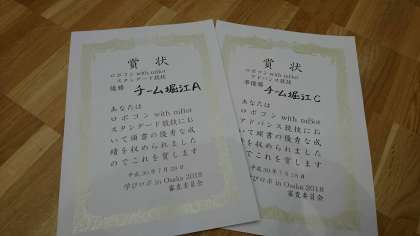 賞状
ロボコン with mBot
スタンダード競技
優勝 チーム堀江A
あなたは
ロボコン with mBot
スタンダード競技にお
いて頭書の優秀な成
績を収められました
のでこれを賞します
平成30年7月29日
学びロボ in Osaka 2018
審査委員会
賞状
ロボコン with mBot
アドバンス競技
準優勝 チーム堀江C
あなたは
ロボコン with mBot
アドバンス競技にお
いて頭書の優秀な成
績を収められました
のでこれを賞します
平成30年7月29日
学びロボ in Osaka 2018
審査委員会